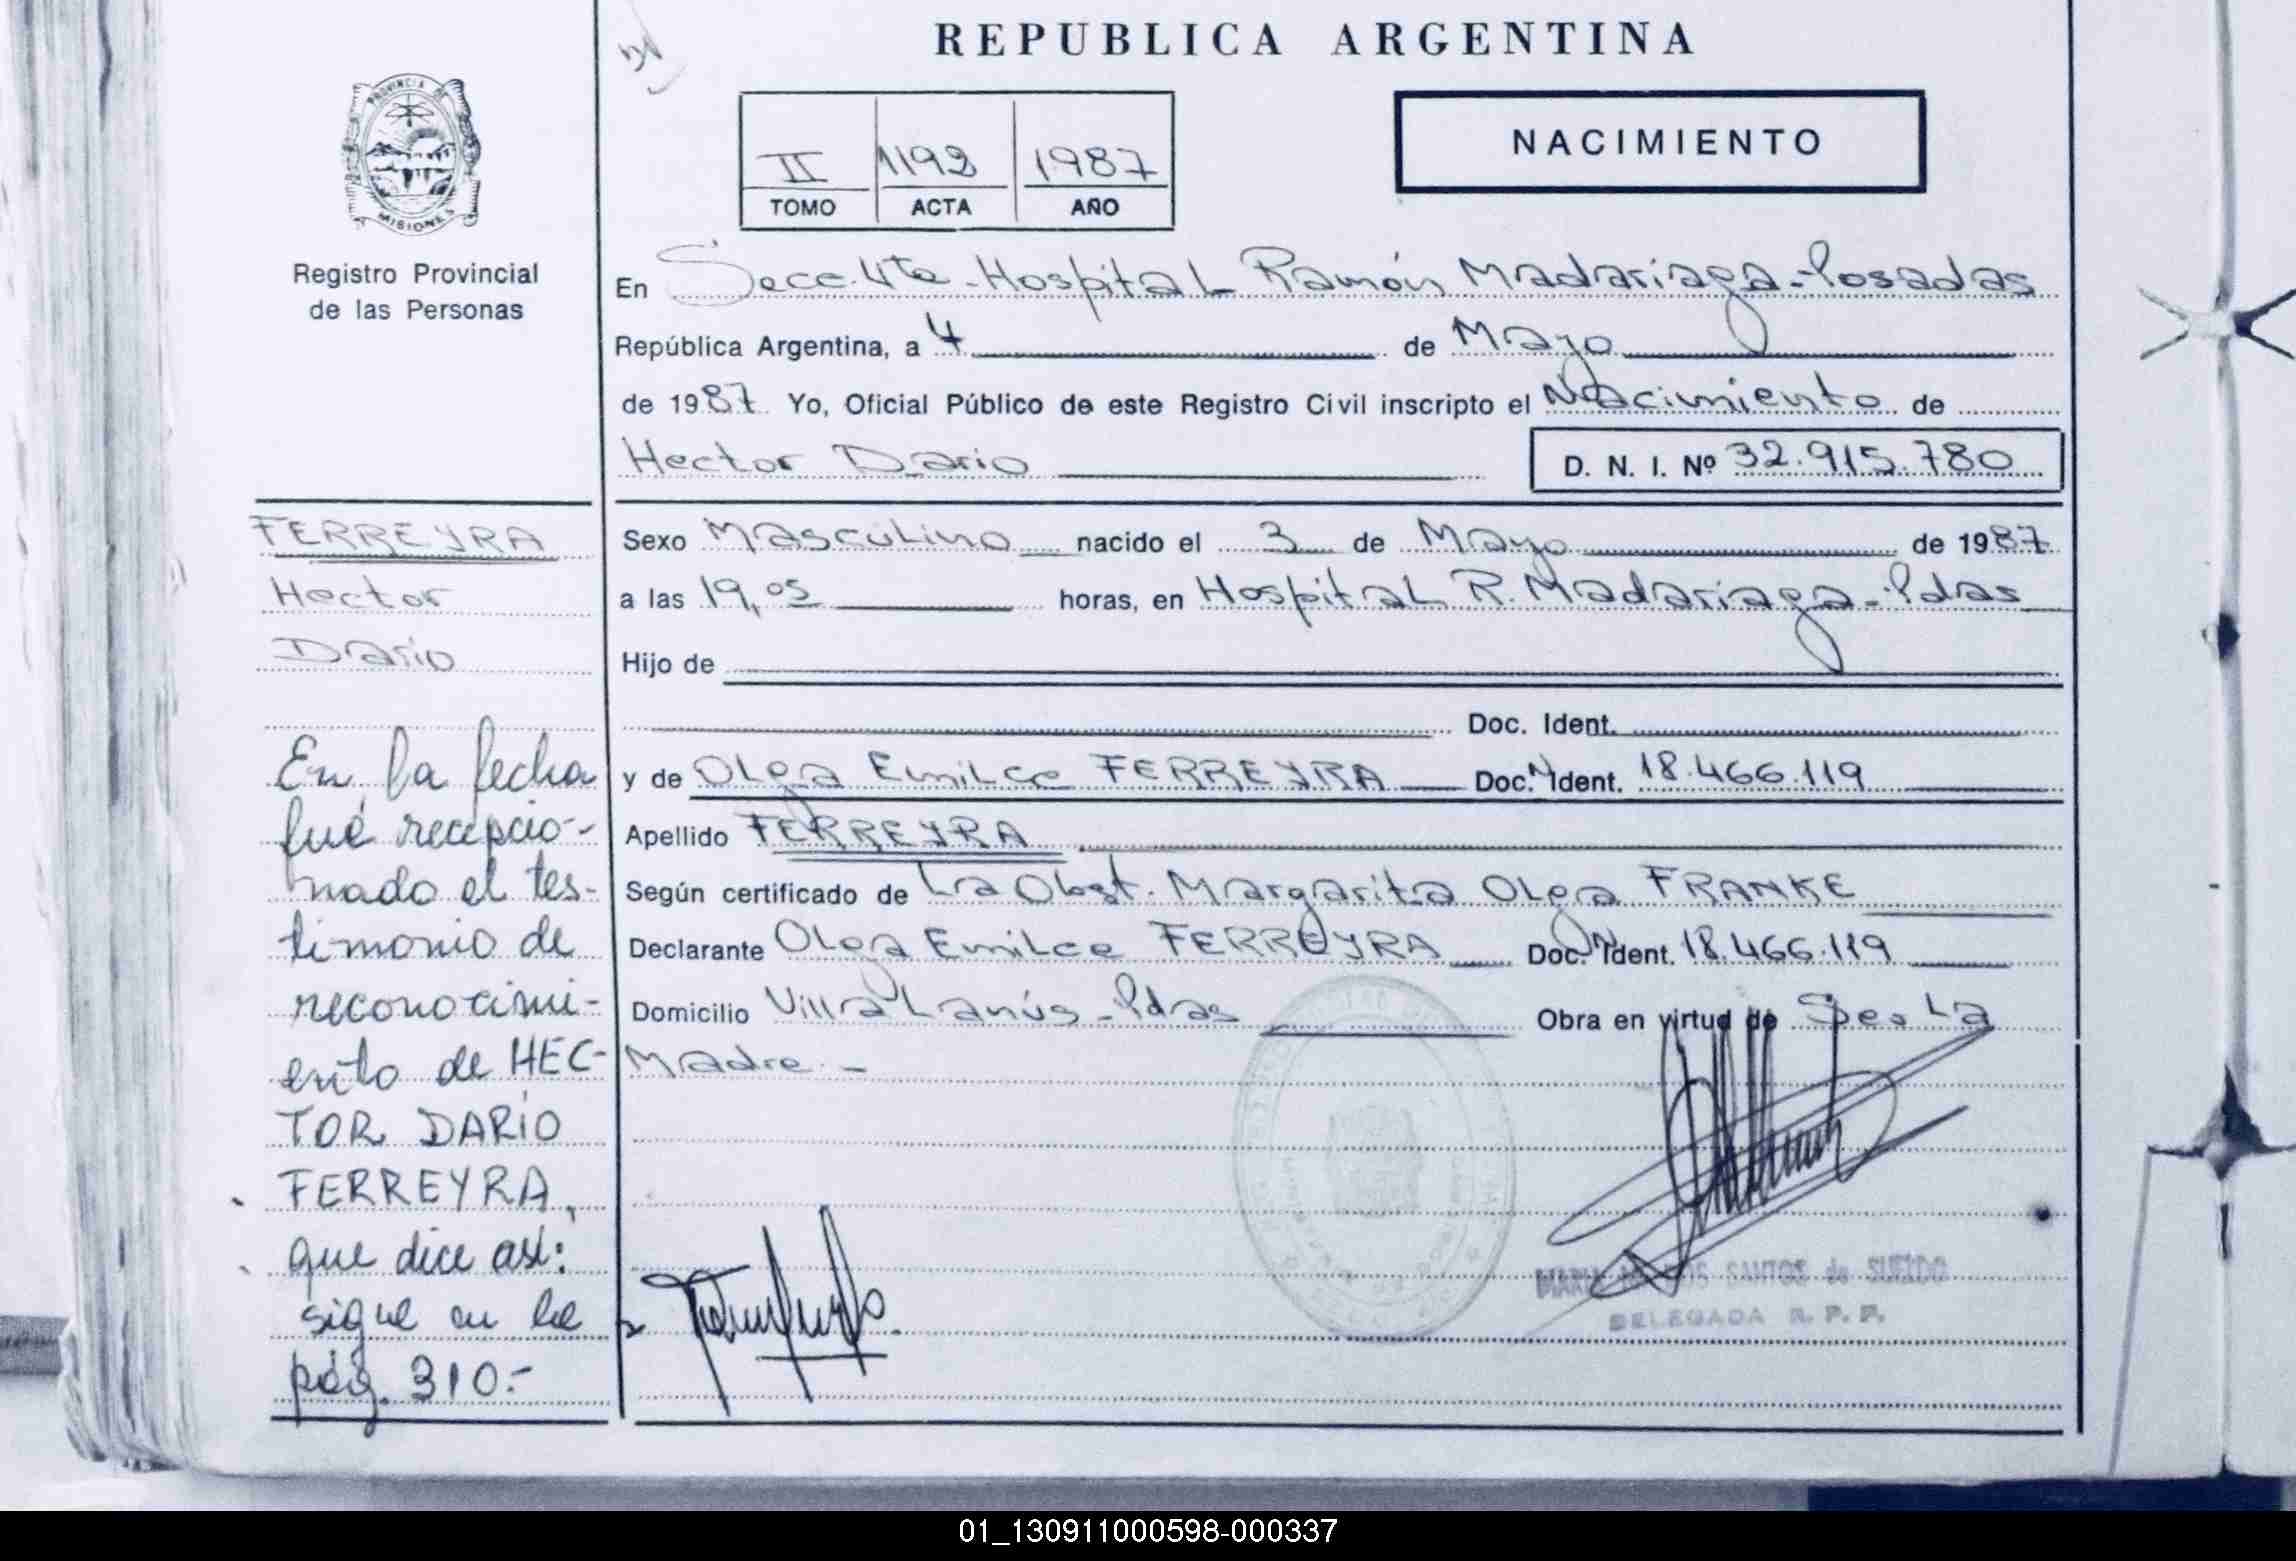 REPUBLICA ARGENTINA
PROVINCIA DE
MISIONES
Registro Provincial
de las Personas
II 1192 1987
TOMO ACTA AÑO
NACIMIENTO
En Secc. 4ta - Hospital Ramón Madariaga - Posadas
República Argentina, a 4 de Mayo
de 1987 Yo, Oficial Público de este Registro Civil inscripto el Nacimiento de
Hector Dario D. N. I. Nº 32.915.780
FERREYRA
Hector
Dario
Sexo Masculino nacido el 3 de Mayo de 1987
a las 19,05 horas, en Hospital R. Madariaga - Pdas
Hijo de
Doc. Ident.
y de Olga Emilce FERREYRA Doc. Ident. 18.466.119
Apellido FERREYRA
Según certificado de La Obst. Margarita Olga FRANKE
Declarante Olga Emilce FERREYRA Doc. Ident. 18.466.119
Domicilio Villa Lanús - Pdas Obra en virtud de Ser La
Madre. -
En la fecha
fué recepcio-
nado el tes-
timonio de
reconocimi-
ento de HEC-
TOR DARÍO
FERREYRA,
que dice así:
sigue en la
pág. 310.-
SANTOS de
DELEGADA R. P. P.
01_130911000598-000337